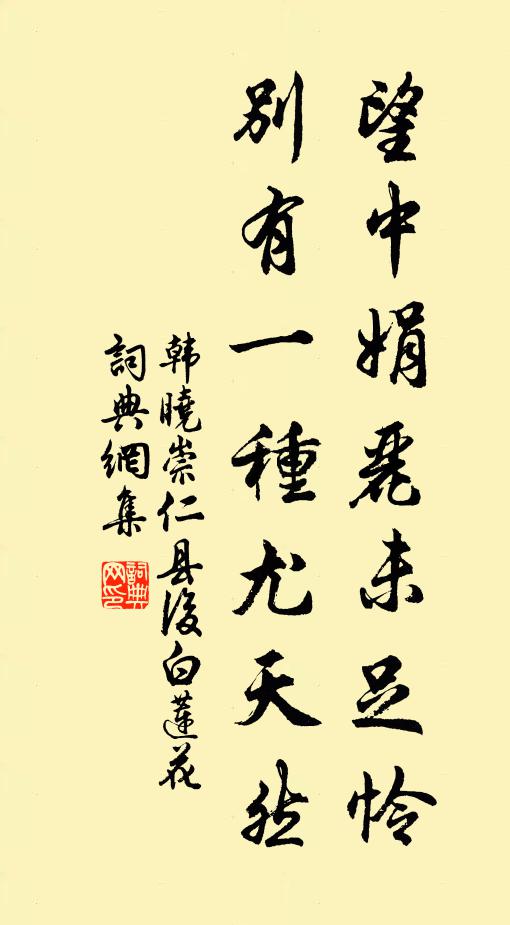 望中娟麗未足怜
别有一種尤天然
韩曉崇仁县後白蓮花
詞典網集
詞典网印